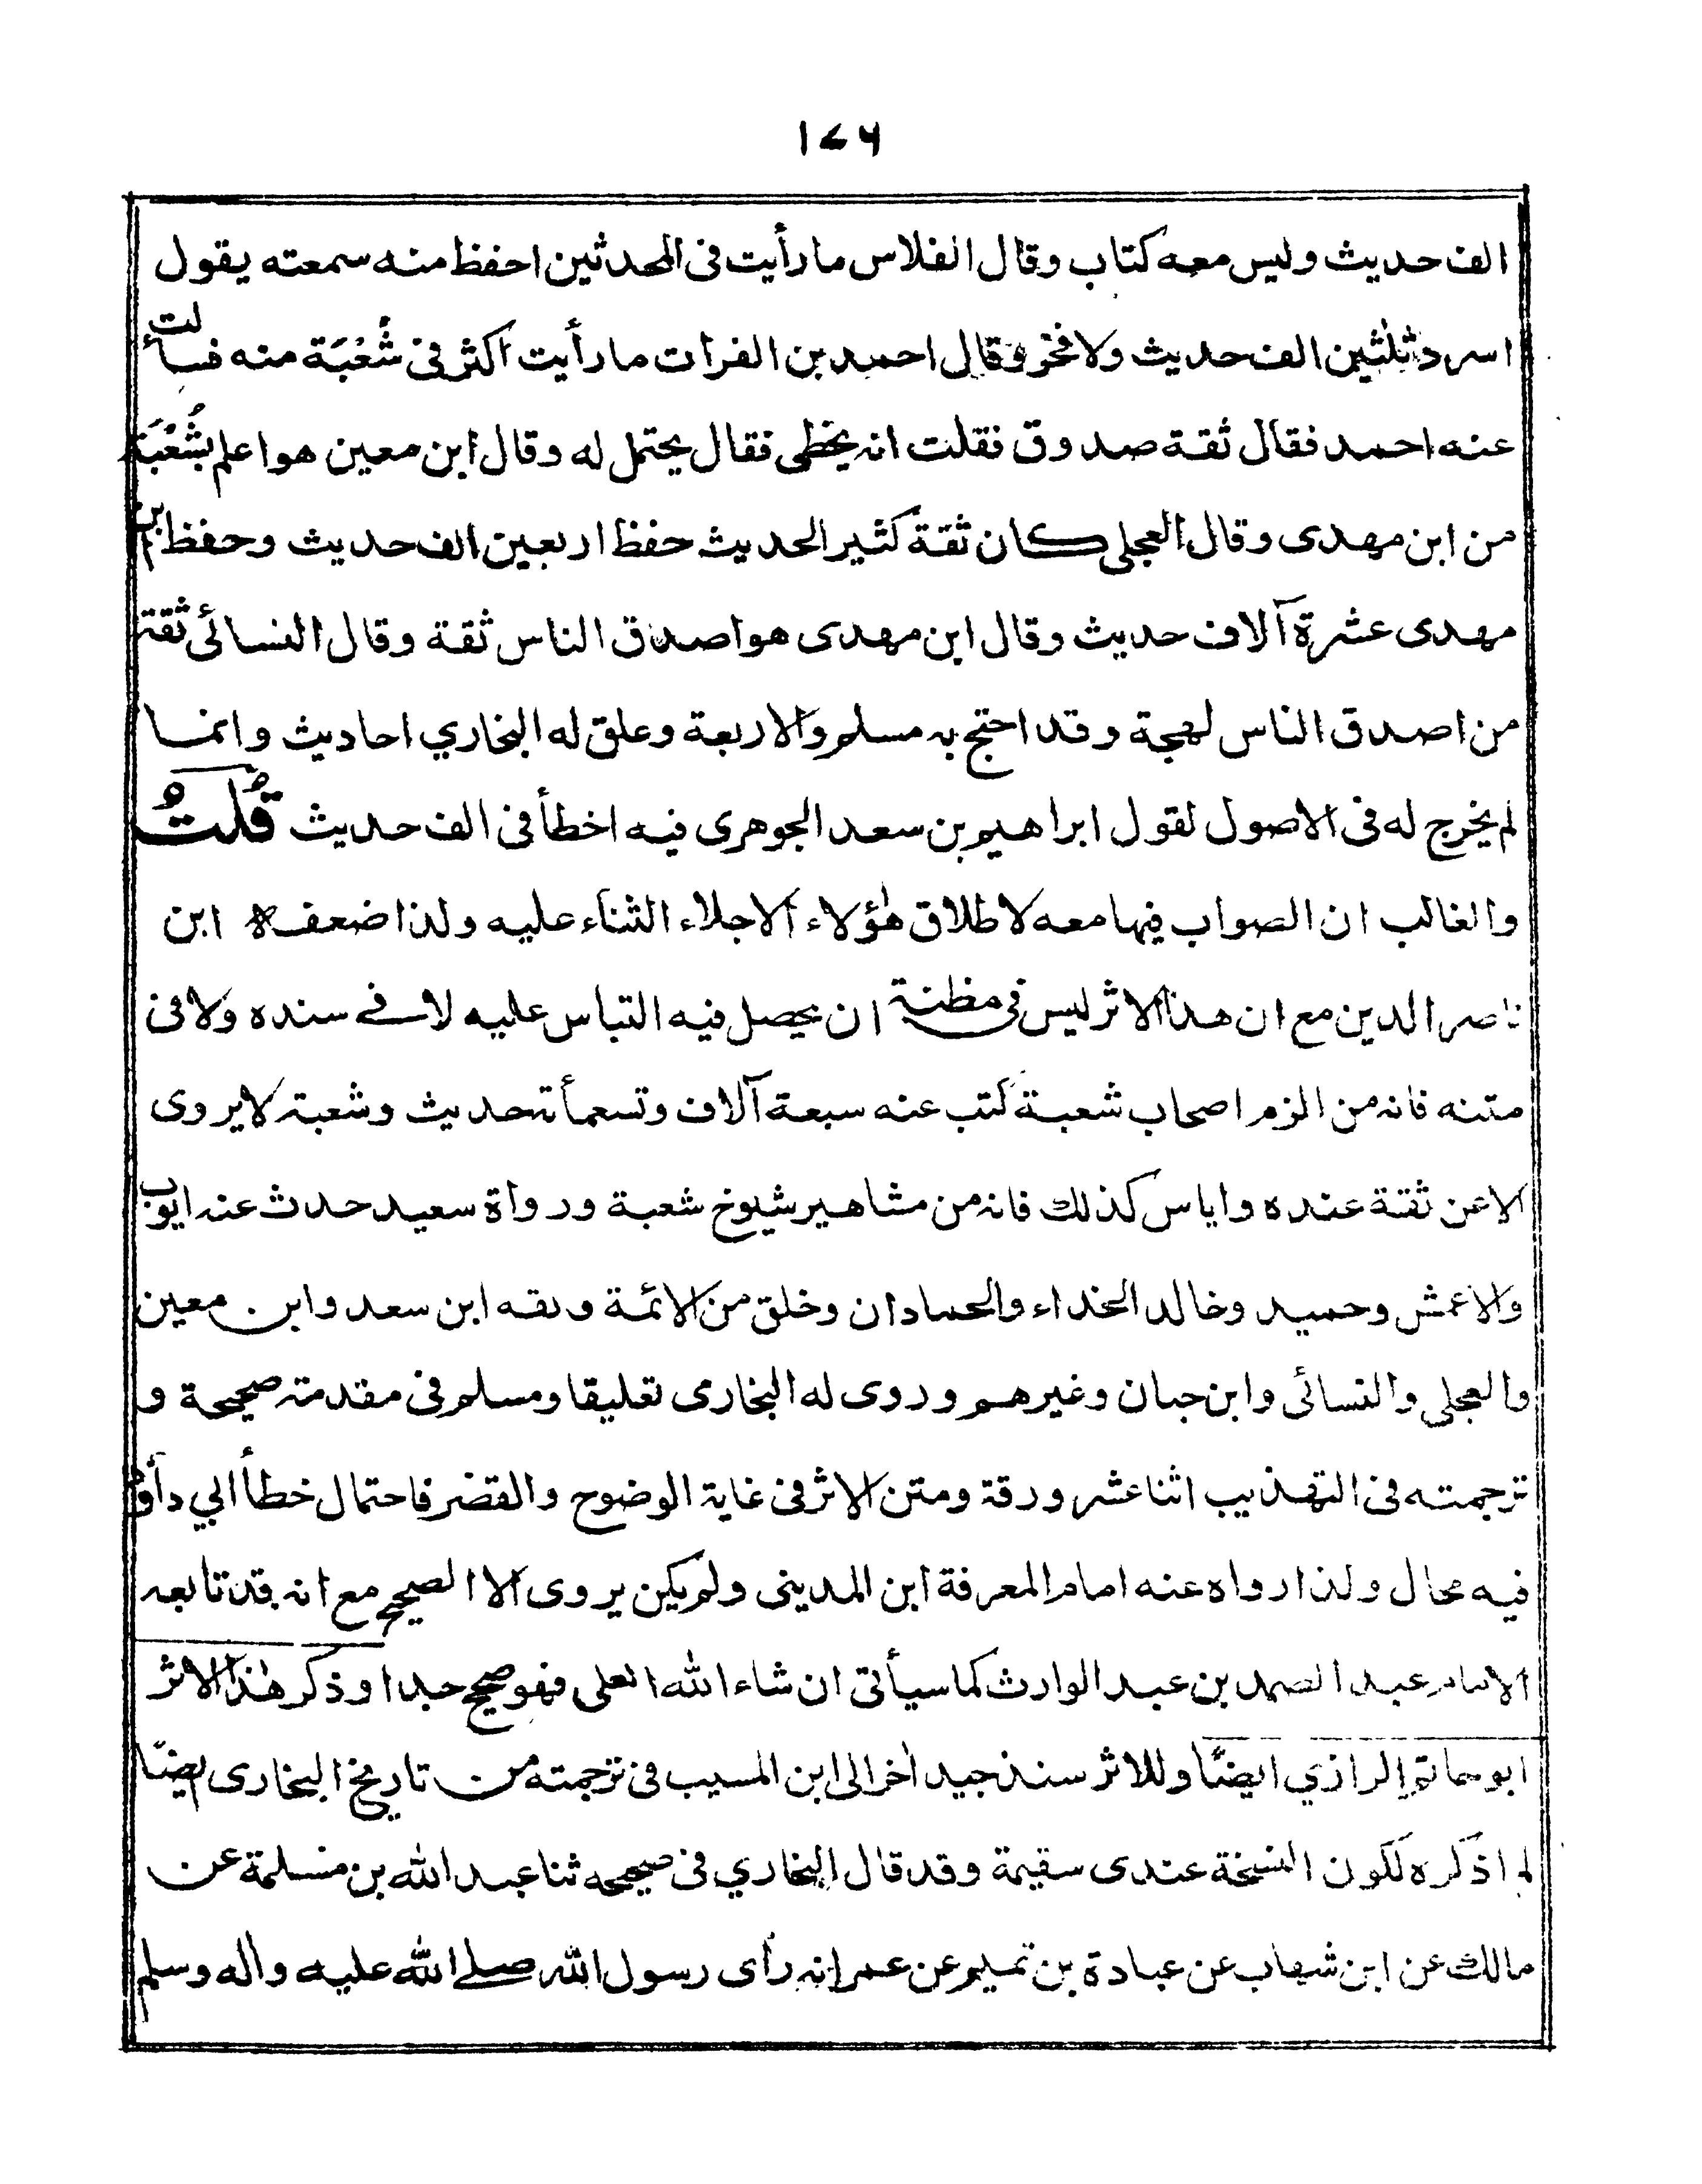 ١٧٦
الف حديث وليس معه كتاب وقال الفلاس ما رأيت فى المحدثين احفظ منه سمعته يقول
اسرد ثلثين الف حديث ولا فخر وقال احمد بن الفرات ما رأيت اكثر فى شُعْبَة منه فسألت
عنه احمد فقال ثقة صدوق فقلت انه يخطى فقال يحتمل له وقال ابن معين هو اعلم بشُعْبَة
من ابن مهدى وقال العجلى كان ثقة كثير الحديث حفظ اربعين الف حديث وحفظ ابن
مهدى عشرة آلاف حديث وقال ابن مهدى هو اصدق الناس ثقة وقال النسائى ثقة
من اصدق الناس لهجة وقد احتج به مسلم والاربعة وعلق له البخاري احاديث وانما
لم يخرج له فى الاصول لقول ابراهيم بن سعد الجوهرى فيه اخطأ فى الف حديث قُلتُ
والغالب ان الصواب فيها معه لاطلاق هٰؤلاء الاجلاء الثناء عليه ولذا ضعفه ابن
ناصر الدين مع ان هذا الاثر ليس فى مظنة ان يحصل فيه التباس عليه لا فے سنده ولا فى
متنه فانه من الزم اصحاب شعبة كتب عنه سبعة آلاف وتسعمأته حديث وشعبة لا يروى
الا عن ثقة عنده واياس كذلك فانه من مشاهير شيوخ شعبة ورواة سعيد حدث عنه ايوب
والاعمش وحميد وخالد الحذاء والحمادان وخلق من الائمة وثقه ابن سعد وابن معين
والعجلى والنسائى وابن حبان وغيرهم وروى له البخارى تعليقا ومسلم فى مقدمته صحيحة و
ترجمته فى التهذيب اثنا عشر ورقة ومتن الاثر فى غاية الوضوح والقصر فاحتمال خطأ ابي داؤد
فيه محال ولذا رواه عنه امام المعرفة ابن المدينى ولم يكن يروى الا الصحيح مع انه قد تابعه
الامام عبد الصمد بن عبد الوارث كما سيأتى ان شاء الله العلى فهو صحيح جدا وذكر هٰذا الاثر
ابو حاتم الرازي ايضًا وللاثر سند جيد اخر الى ابن المسيب فى ترجمته من تاريخ البخارى ايضًا
لم اذكره لكون النسخة عندى سقيمة وقد قال البخاري فى صحيحه ثنا عبد الله بن مسلمة عن
مالك عن ابن شهاب عن عبادة بن تميم عن عمر انه رأى رسول الله صلے الله عليه واله وسلم